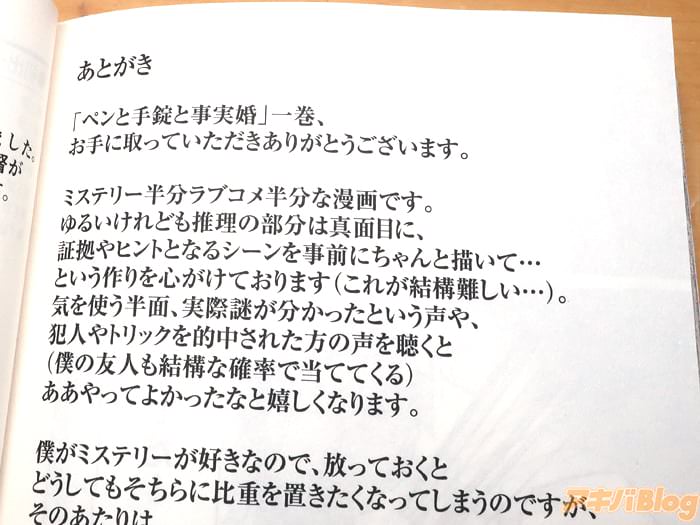 あとがき
「ペンと手錠と事実婚」一巻、
お手に取っていただきありがとうございます。
ミステリー半分ラブコメ半分な漫画です。
ゆるいけれども推理の部分は真面目に、
証拠やヒントとなるシーンを事前にちゃんと描いて…
という作りを心がけております(これが結構難しい…)。
気を使う半面、実際謎が分かったという声や、
犯人やトリックを的中された方の声を聴くと
(僕の友人も結構な確率で当ててくる)
ああやってよかったなと嬉しくなります。
僕がミステリーが好きなので、放っておくと
どうしてもそちらに比重を置きたくなってしまうのですが、
そのあたりは
した。
が
す。
アキバBlog